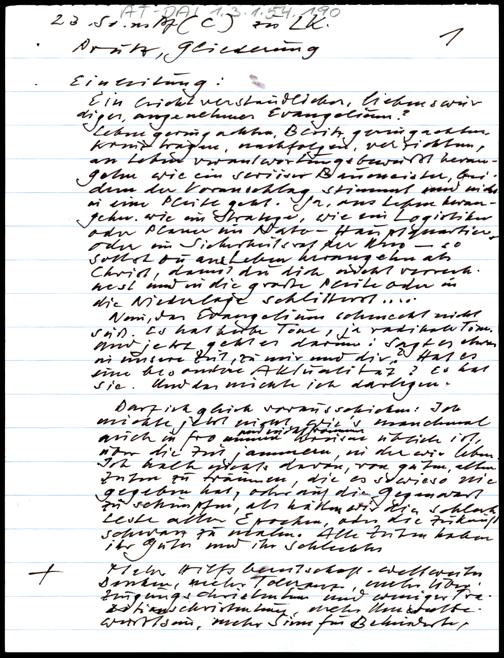 AT-DAL 1.3.1.54.190
23. So. n. Pf (C) zu LK.
1
Druck, Gliederung
Einleitung:
Ein leicht verständliches, liebenswür
diges, angenehmes Evangelium?
Leben gering achten, Besitz gering achten
Kreuz tragen, nachfolgen, verzichten,
an Leben verantwortungsbewußt heran-
gehn wie ein seriöser Baumeister, bei
dem der Voranschlag stimmt und nicht
in eine Pleite geht. Ja, ans Leben heran-
gehen, wie ein Stratege, wie ein Logistiker
oder Planer im Nato-Hauptquartier
oder im Sicherheitsrat der Uno – so
sollst du ans Leben herangehn als
Christ, damit du dich nicht verrech-
nest und in die große Pleite oder in
die Niederlage schlitterst....
Nein, das Evangelium schmeckt nicht
süß. Es hat harte Töne, ja radikale Töne.
Und jetzt geht es darum: sagt es etwas
in unsere Zeit, zu mir und dir? Hat es
eine besondere Aktualität? Es hat
sie. Und das möchte ich darlegen.
Darf ich gleich vorausschicken: Ich
möchte jetzt nicht, wie's manchmal
auch in frommen Kreisen üblich ist,
über die Zeit jammern, in der wir leben.
Ich halte nichts davon, von guten, alten
Zeiten zu träumen, die es sowieso nie
gegeben hat, oder auf die Gegenwart
zu schimpfen, als hätten wir die schlech
teste aller Epochen, oder die Zukunft
schwarz zu malen. Alle Zeiten haben
ihr Gutes und ihr Schlechtes
+ Mehr Hilfsbereitschaft – weltweites
Denken, mehr Toleranz, mehr Über
zeugungschristentum und weniger Tra-
ditionschristentum, mehr
mehr Sinn für Behinderte,